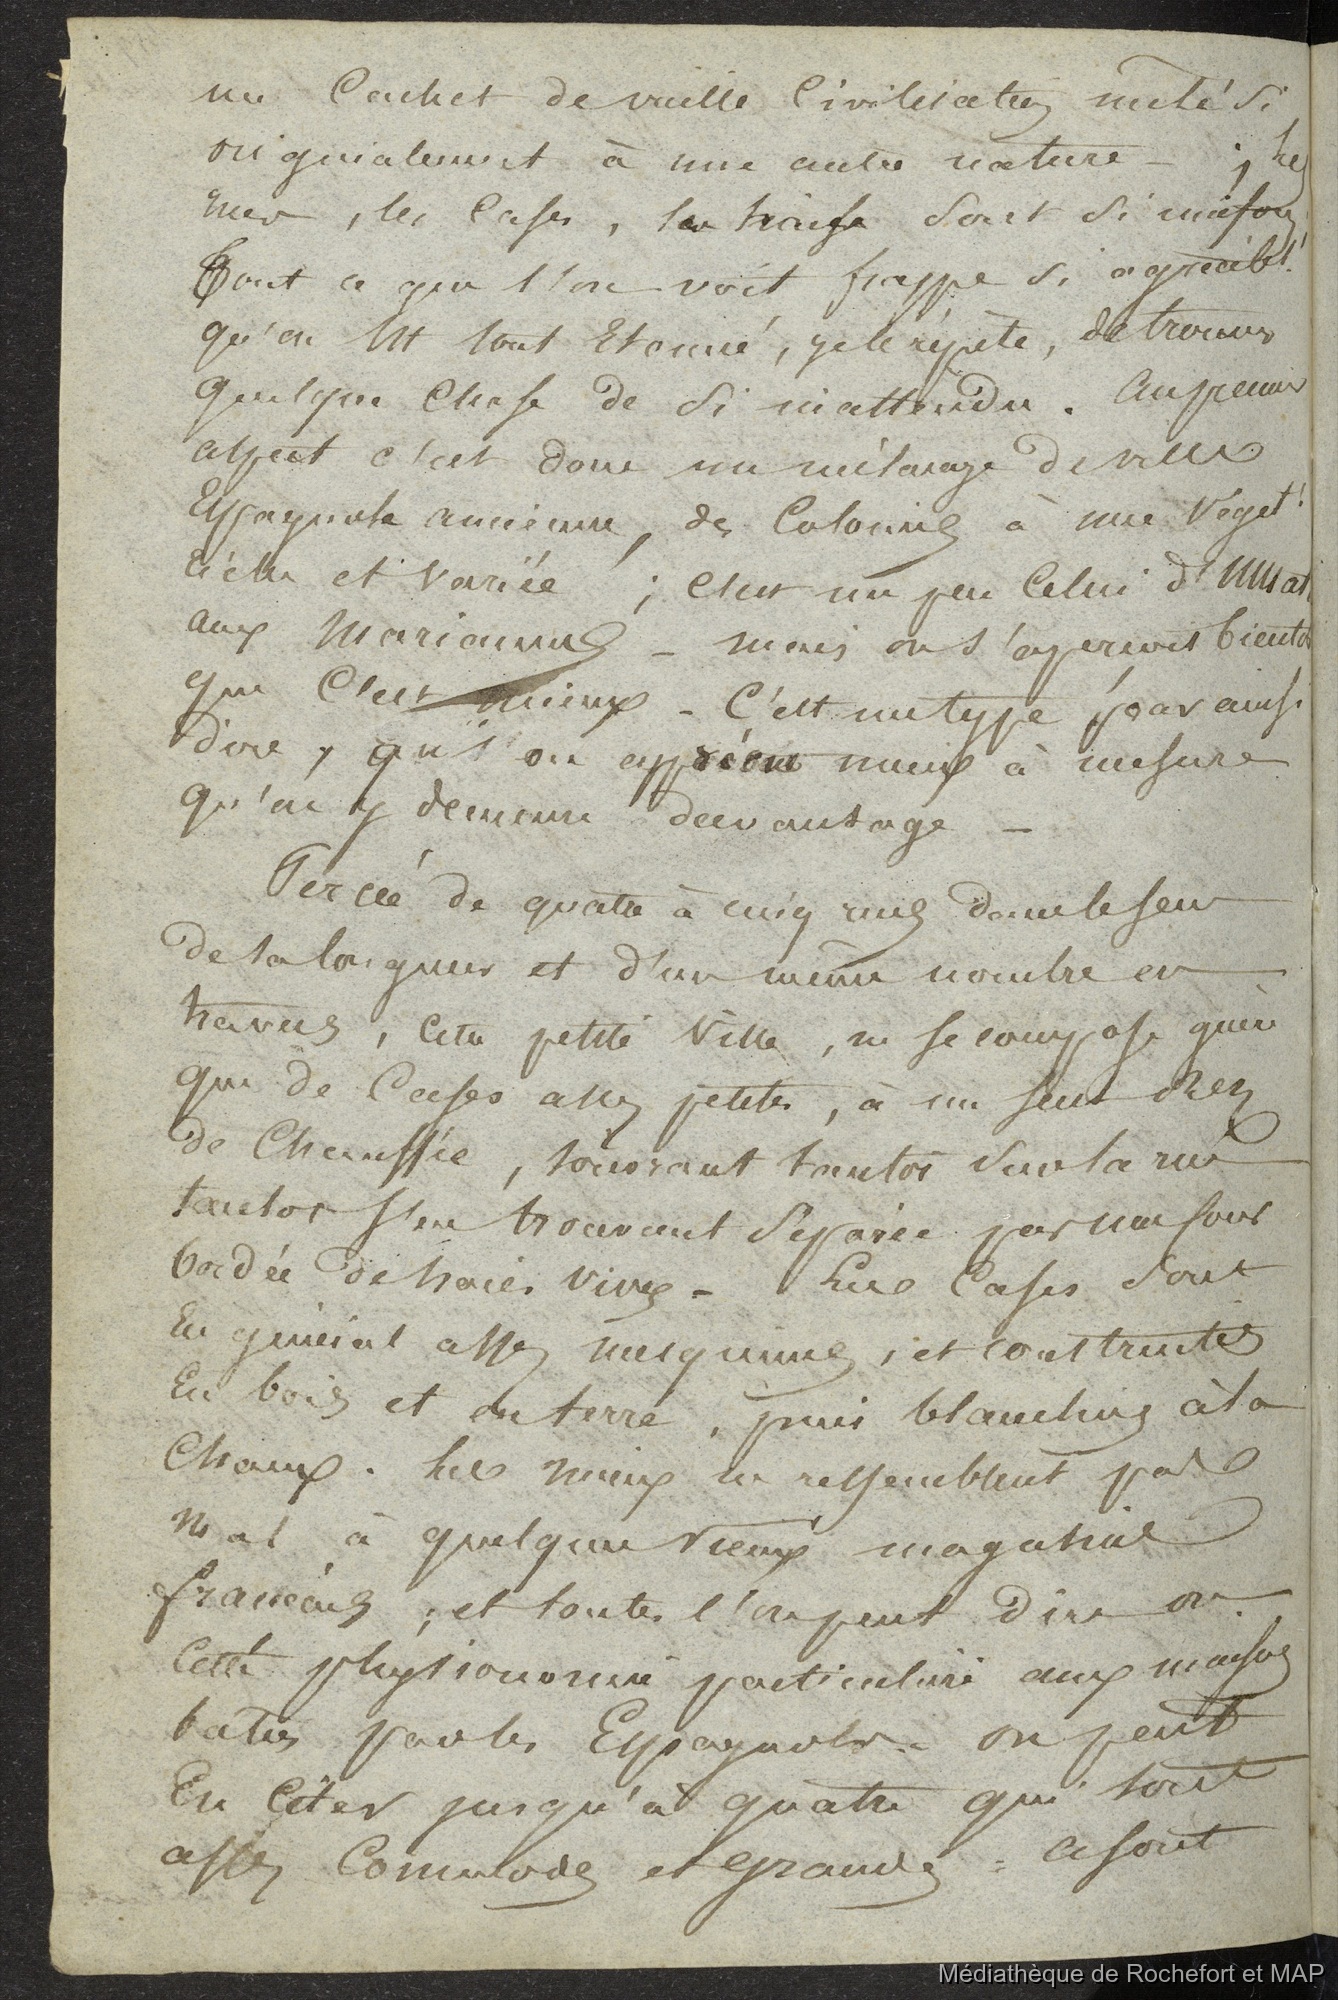 un Cachet de vieille Civilisation mêlé si
originalement à une autre nature - ; les
mer, les Cases, la sont si
Tout ce que l'on voit frappe si agréablt
qu'on est tout Etonné, je le répète, de trouver
quelque Chose de si inattendu. Au premier
aspect c'est donc un mélange de ville
Espagnole ancienne, de Colonies à une végét.
riche et variée ; c'est un peu Celui d'Umat
aux Mariannes - mais on s'aperçoit bientôt
que C'est mieux - C'est un type, pour ainsi
dire, qu'l'on apprécie mieux à mesure
qu'on y demeure davantage -
Percée de quatre à cinq rues dans le sens
de sa longueur et d'un même nombre en
travers, cette petite Ville, ne se compose guère
que de Cases assez petites, à un seul Rez
de Chaussée, tantôt sur la rue
tantôt s'en trouvant séparée par une cour
bordée de haies vives - Les Cases sont
En général assez mesquines, et construites
En bois et en terre, puis blanchies à la
Chaux. Les mieux ne ressemblent pas
mal à quelques vieux magasins
français ; et toutes l'on peut dire ont
Cette physionomie particulière aux maisons
baties par les Espagnols - on peut
En Citer jusqu'à quatre qui sont
assez Commodes et grandes = ce sont
Médiathèque de Rochefort et MAP